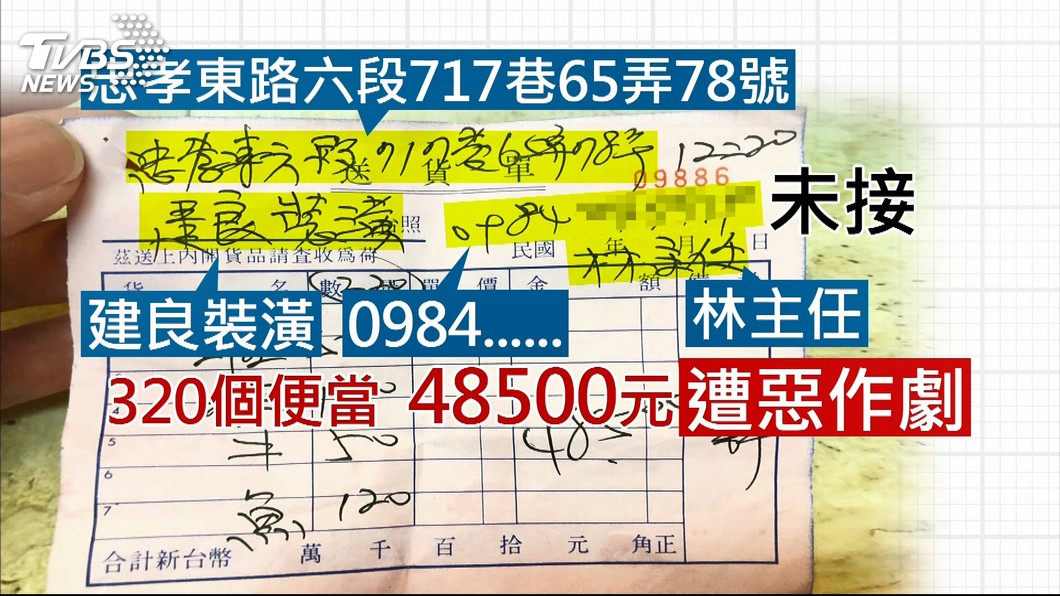 TVBS
NEWS
忠孝東路六段717巷65弄78號
忠孝東六段717巷65弄78号 12:20
送貨單
09886
未接
建良裝潢
0984
台照
民國 年 月 日
林主任
茲送上內開貨品請查收為荷
貨 名 數 單價 金 額 備
建良裝潢 0984...... 林主任
320個便當 48500元 遭惡作劇
4
5 牛 50
6
7 魚 120
合計新台幣 萬 千 百 拾 元 角正